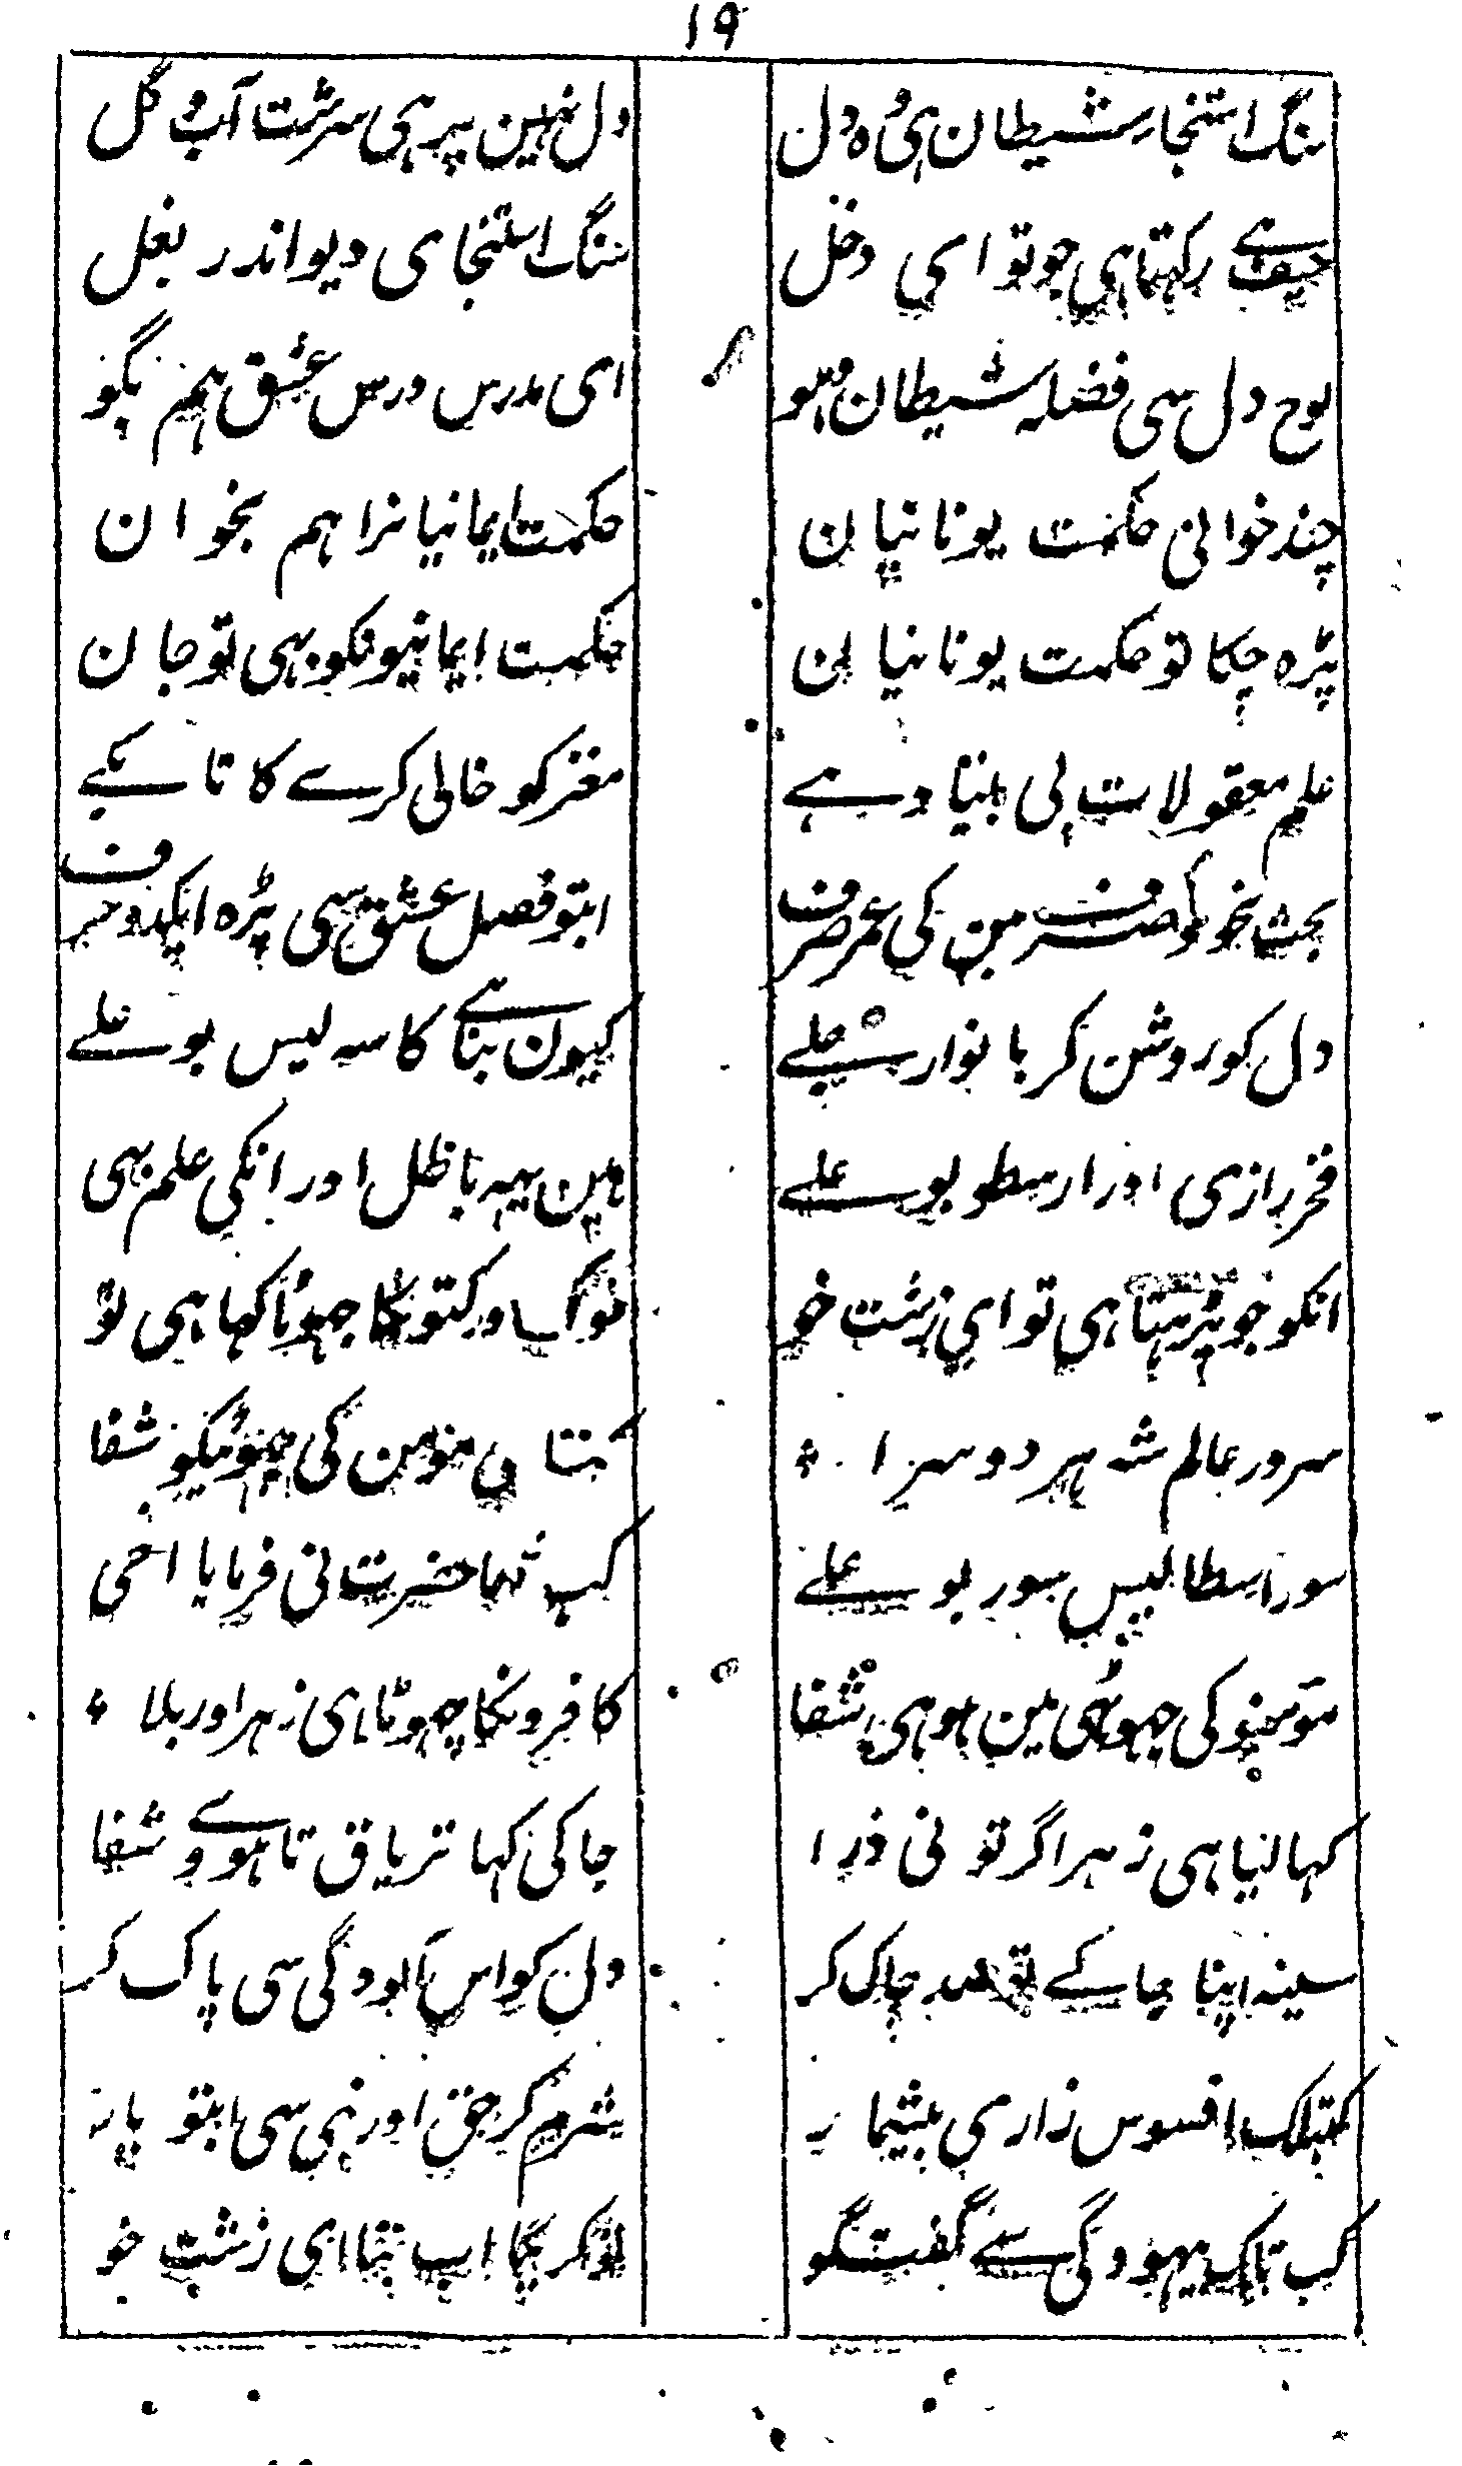 ۱۹
سنگ استنجاء شیطان ہی وہ دل دل نہین پہر ہی سرشت آب و گل
حیف ہے رکہتا ہی جو تو اسی دخل سنگ استنجای دیو اندر بغل
لوح دل سی فضلہ شیطان بشو ای مدرس درس عشق ہم بگو
چند خوانی حکمت یونانیان حکمت ایمانیانرا ہم بخوان
پڑہ چکا تو حکمت یونانیان حکمت ایمانیونکو بہی تو جان
علم معقولات بی بنیاد ہے مغز کو خالی کرے گا تا بکے
بحث نحو و صرف مین کی عمر صرف ابتو فصل عشق سی پڑہ ایکدو حرف
دل کو روشن کر بانوار جلے کیون بنا ہے کاسہ لیس بو علے
فخر رازی اور ارسطو بو علے ہین یہہ باطل اور انکی علم بہی
انکو جو پڑہتا ہی تو ای زشت خو خوگ و کتونکا جہوٹا کہا ہی تو
سرور عالم شہ ہر دو سرا مؤمن کی جہوٹیکو شفا
سور اسطالیس سور بو علے کب تہا حضرت نی فرمایا اخی
مؤمنو کی جہوٹی مین ہو ہی شفا کافرونکا جہوٹا ہی زہر اور بلا
کہا لیا ہی زہر اگر تو نی ذرا جا کی کہا تریاق تا ہووے شفا
سینہ اپنا جا کے تو صد چاک کر دل کو اس آلودگی سی پاک کر
کبتلک افسوس زاری بیشمار شرم کر حق اور نبی سی ابتو یار
کب تلک بیہودگی سے گفتگو اب ای زشت خو